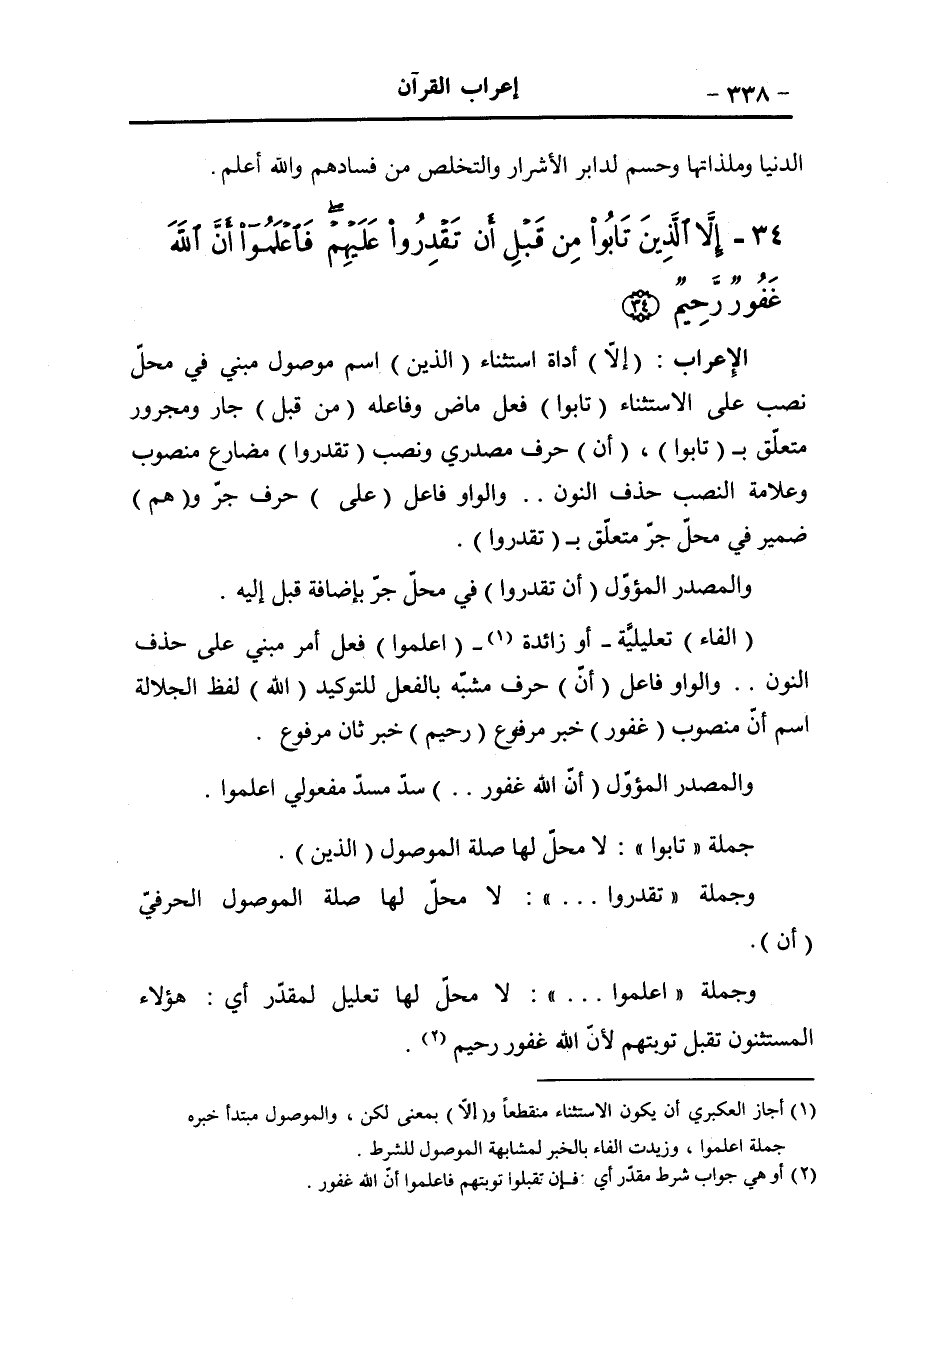 - ٣٣٨ - إعراب القرآن
الدنيا وملذاتها وحسم لدابر الأشرار والتخلص من فسادهم والله أعلم .
٣٤ - إِلَّا ٱلَّذِينَ تَابُوا۟ مِن قَبْلِ أَن تَقْدِرُوا۟ عَلَيْهِمْ ۖ فَٱعْلَمُوٓا۟ أَنَّ ٱللَّهَ
غَفُورٌ رَّحِيمٌ ﴿٣٤﴾
الإعراب : ( إلّا ) أداة استثناء ( الذين ) اسم موصول مبني في محلّ
نصب على الاستثناء ( تابوا ) فعل ماض وفاعله ( من قبل ) جار ومجرور
متعلّق بـ ( تابوا ) ، ( أن ) حرف مصدري ونصب ( تقدروا ) مضارع منصوب
وعلامة النصب حذف النون . . والواو فاعل ( على ) حرف جرّ و( هم )
ضمير في محلّ جرّ متعلّق بـ ( تقدروا ) .
والمصدر المؤوّل ( أن تقدروا ) في محلّ جرّ بإضافة قبل إليه .
( الفاء ) تعليليَّة - أو زائدة (١) - ( اعلموا ) فعل أمر مبني على حذف
النون . . والواو فاعل ( أنّ ) حرف مشبّه بالفعل للتوكيد ( الله ) لفظ الجلالة
اسم أنّ منصوب ( غفور ) خبر مرفوع ( رحيم ) خبر ثان مرفوع .
والمصدر المؤوّل ( أنّ الله غفور . . ) سدّ مسدّ مفعولي اعلموا .
جملة « تابوا » : لا محلّ لها صلة الموصول ( الذين ) .
وجملة « تقدروا . . . » : لا محلّ لها صلة الموصول الحرفيّ
( أن ) .
وجملة « اعلموا . . . » : لا محلّ لها تعليل لمقدّر أي : هؤلاء
المستثنون تقبل توبتهم لأنّ الله غفور رحيم (٢) .
(١) أجاز العكبري أن يكون الاستثناء منقطعاً و( الّا ) بمعنى لكن ، والموصول مبتدأ خبره
جملة اعلموا ، وزيدت الفاء بالخبر لمشابهة الموصول للشرط .
(٢) أو هي جواب شرط مقدّر أي : فـإن تقبلوا توبتهم فاعلموا أنّ الله غفور .